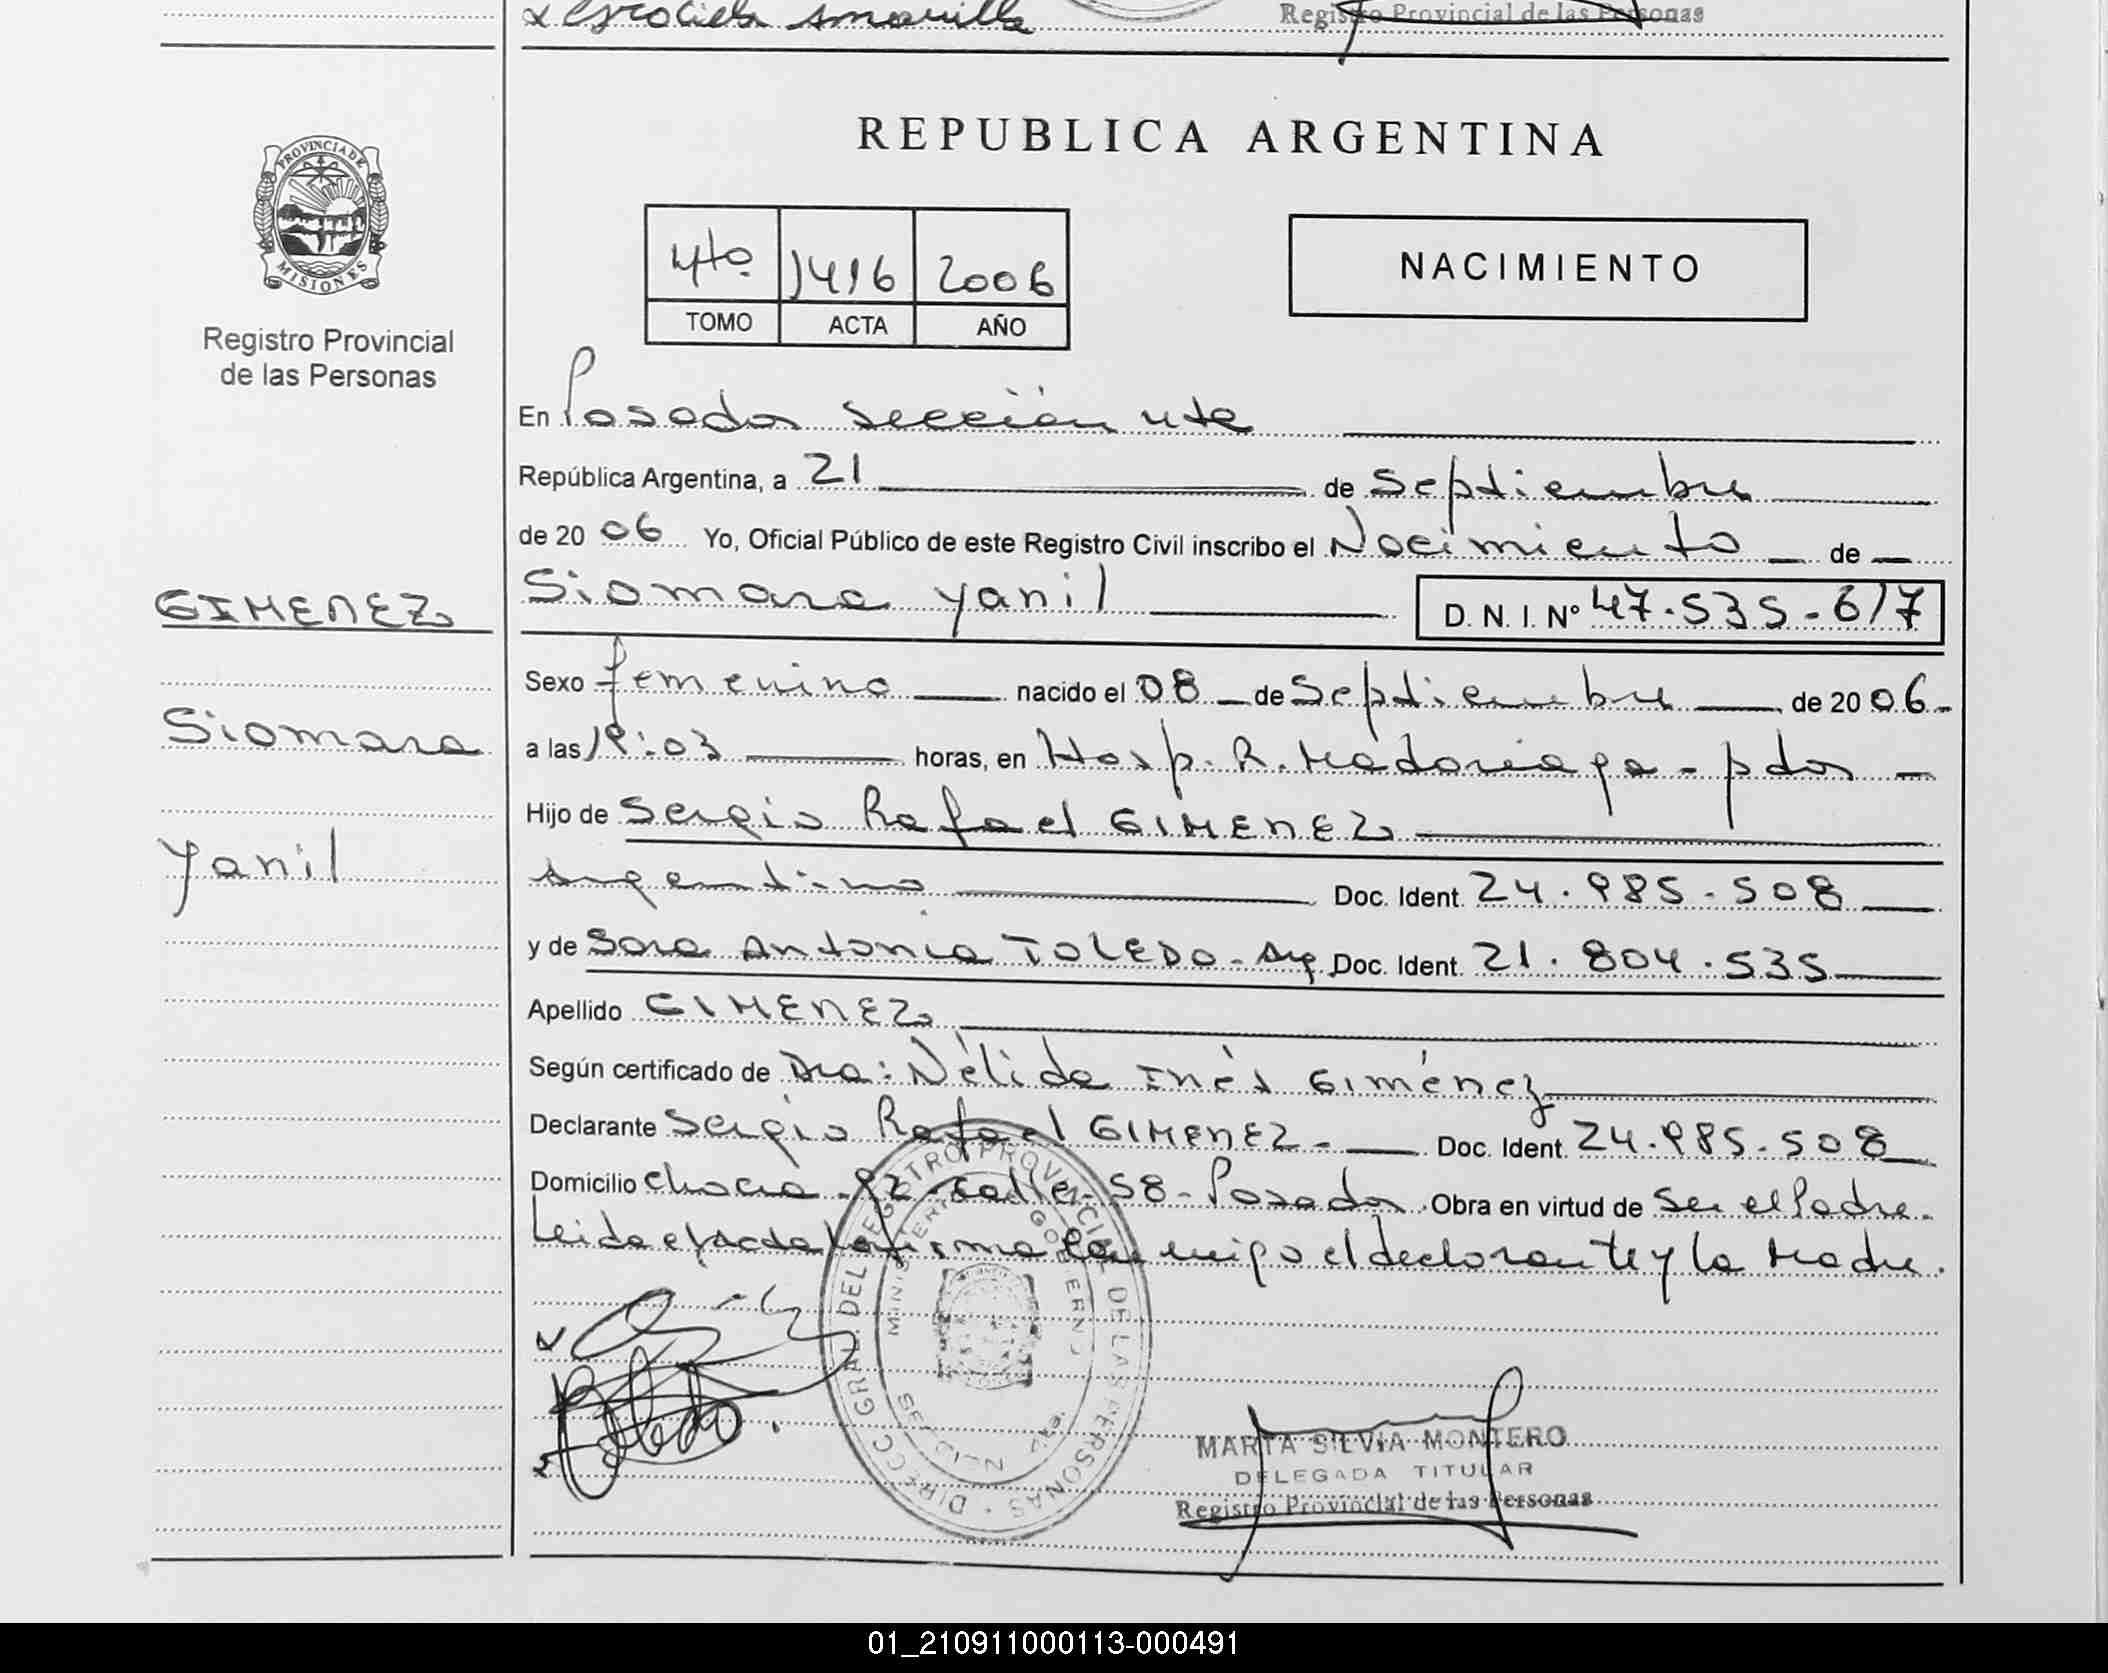 Graciela Amarilla
Registro Provincial de las Personas
PROVINCIA DE
MISIONES
Registro Provincial
de las Personas
REPUBLICA ARGENTINA
4to 1416 2006
TOMO ACTA AÑO
NACIMIENTO
En Posadas sección 4ta
República Argentina, a 21 de Septiembre
de 20 06 Yo, Oficial Público de este Registro Civil inscribo el Nacimiento de
GIMENEZ
Siomara Yanil
D. N. I. Nº 47.535.617
Sexo femenino nacido el 08 de Septiembre de 20 06
Siomara
a las 19:03 horas, en Hosp. R. Madariaga - pdas
Hijo de Sergio Rafael GIMENEZ
Yanil
Argentino Doc. Ident. 24.985.508
y de Sara Antonia TOLEDO - Arg Doc. Ident. 21.804.535
Apellido GIMENEZ
Según certificado de Dra: Nélida Inés Giménez
Declarante Sergio Rafael GIMENEZ Doc. Ident. 24.985.508
Domicilio chacra 92 - calle 58 - Posadas Obra en virtud de Ser el Padre.
Leida el acta la firma con migo el declarante y la Madre.
DIRECC. GRAL. DEL REGISTRO PROVINCIAL DE LAS PERSONAS
MINISTERIO GOBIERNO
MARTA SILVIA MONTERO
DELEGADA TITULAR
Registro Provincial de las Personas
01_210911000113-000491